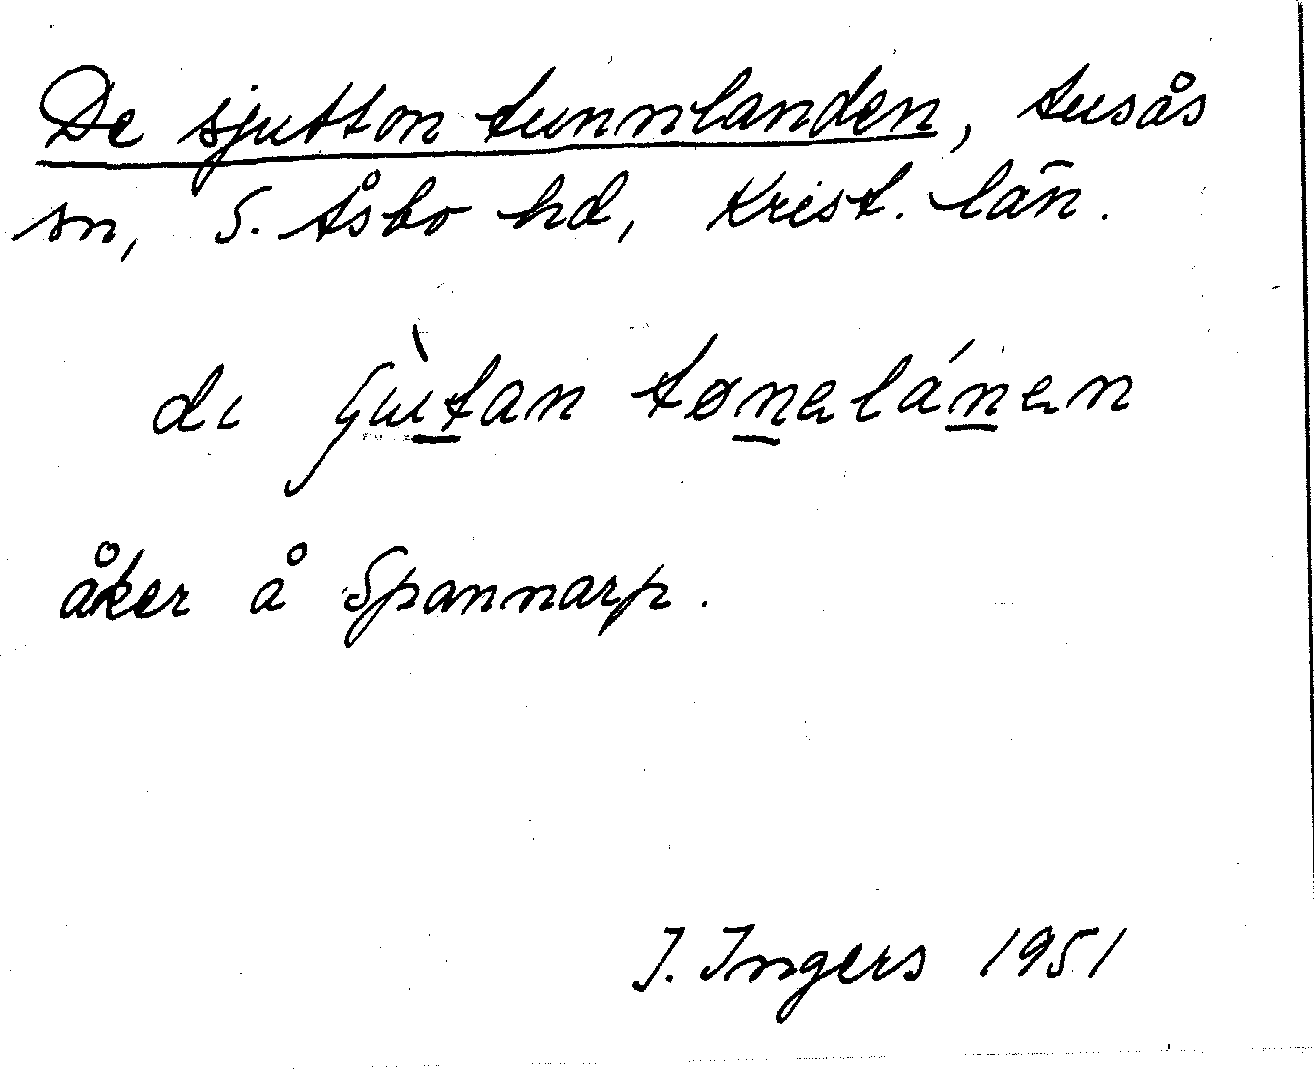 De sjutton tunnlanden, Ausås
sn, S. Åsbo hd, Krist. län.
dı ʃùtan tønalánen
åker å Spannarp.
I. Ingers 1951